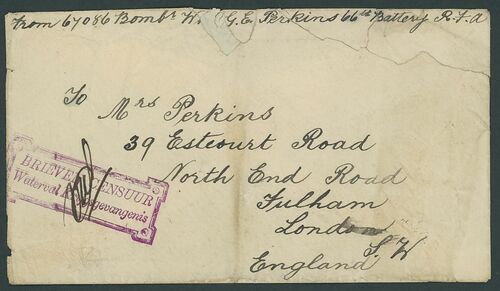 From 67086 Bombr W. G. E. Perkins 66th Battery R.F.A
To Mrs Perkins
39 Estcourt Road
North End Road
Fulham
London
S. W
England
BRIEVEN CENSUUR
Waterval